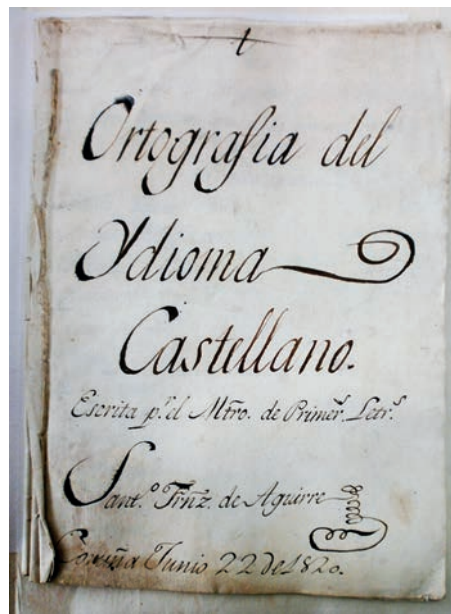 1
Ortografia del
Ydioma
Castellano.
Escrita p.r el Mtro. de Primer.s Letr.s
Sant.o Frñz. de Aguirre
Coruña Junio 22 de 1820.